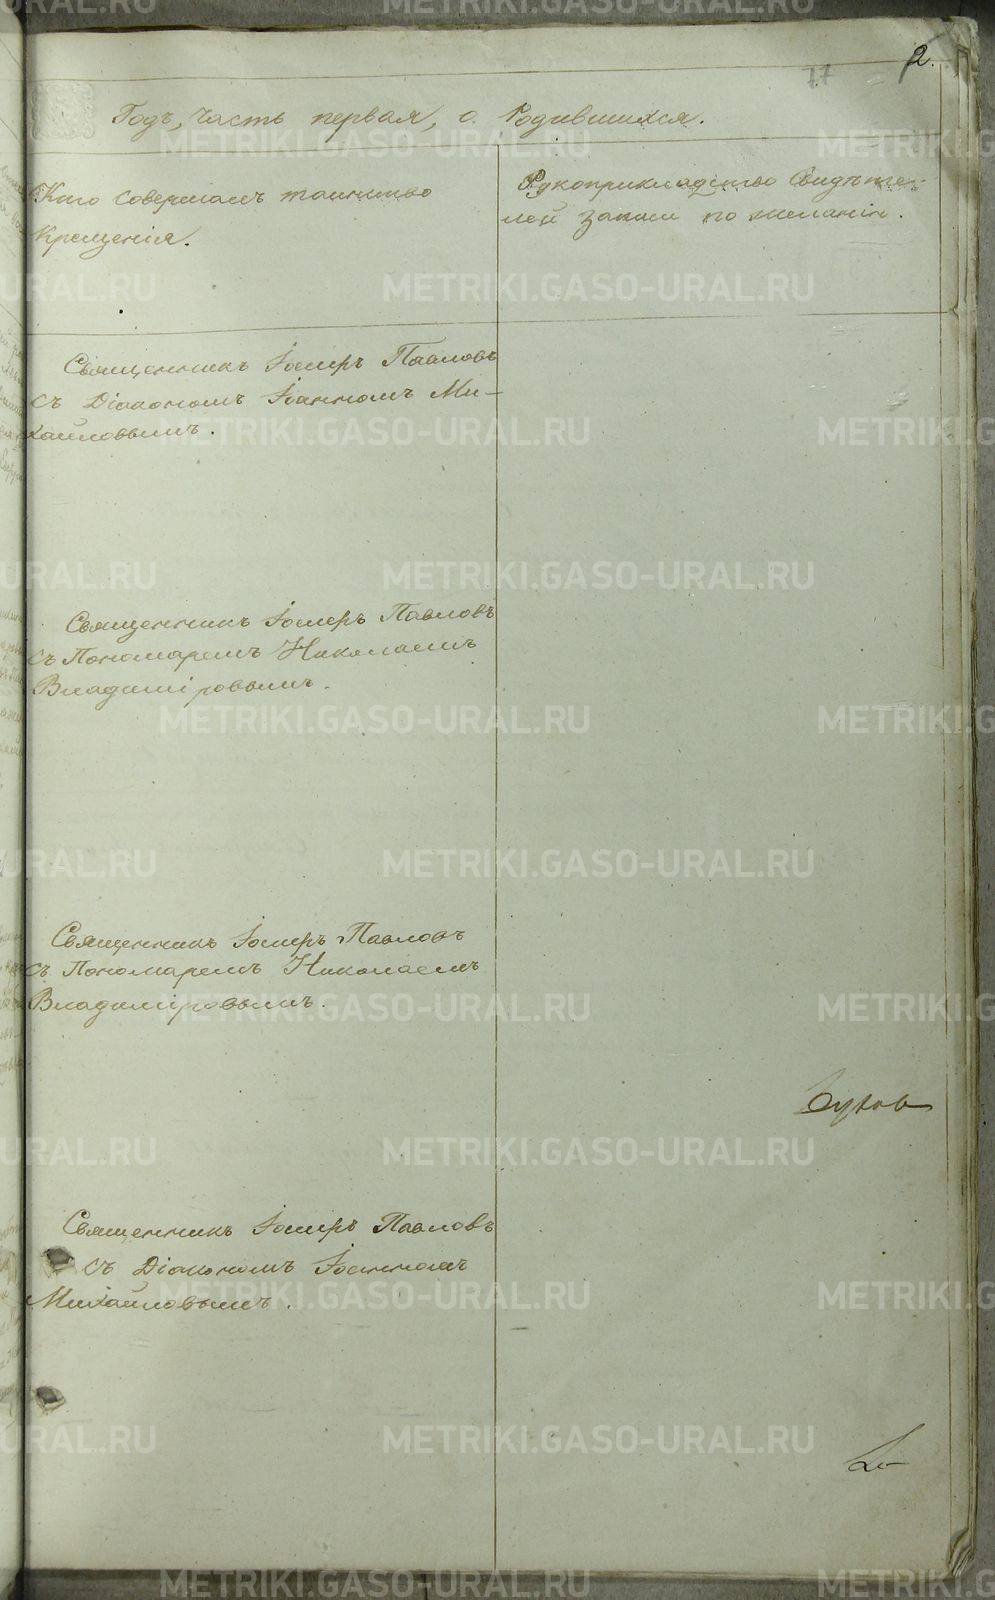 2.
77
Годъ, Часть первая, о Родившихся.
Кто совершалъ таинство
Крещенія.
Рукоприкладство Свидѣте-
лей записи по желанію.
Священникъ Іосифъ Павловъ
съ Діакономъ Іоанномъ Ми-
хайловымъ.
Священникъ Іосифъ Павловъ
съ Пономаремъ Николаемъ
Владиміровымъ.
Священникъ Іосифъ Павловъ
съ Пономаремъ Николаемъ
Владиміровымъ.
Священникъ Іосифъ Павловъ
съ Діакономъ Іоанномъ
Михайловымъ.
METRIKI.GASO-URAL.RU